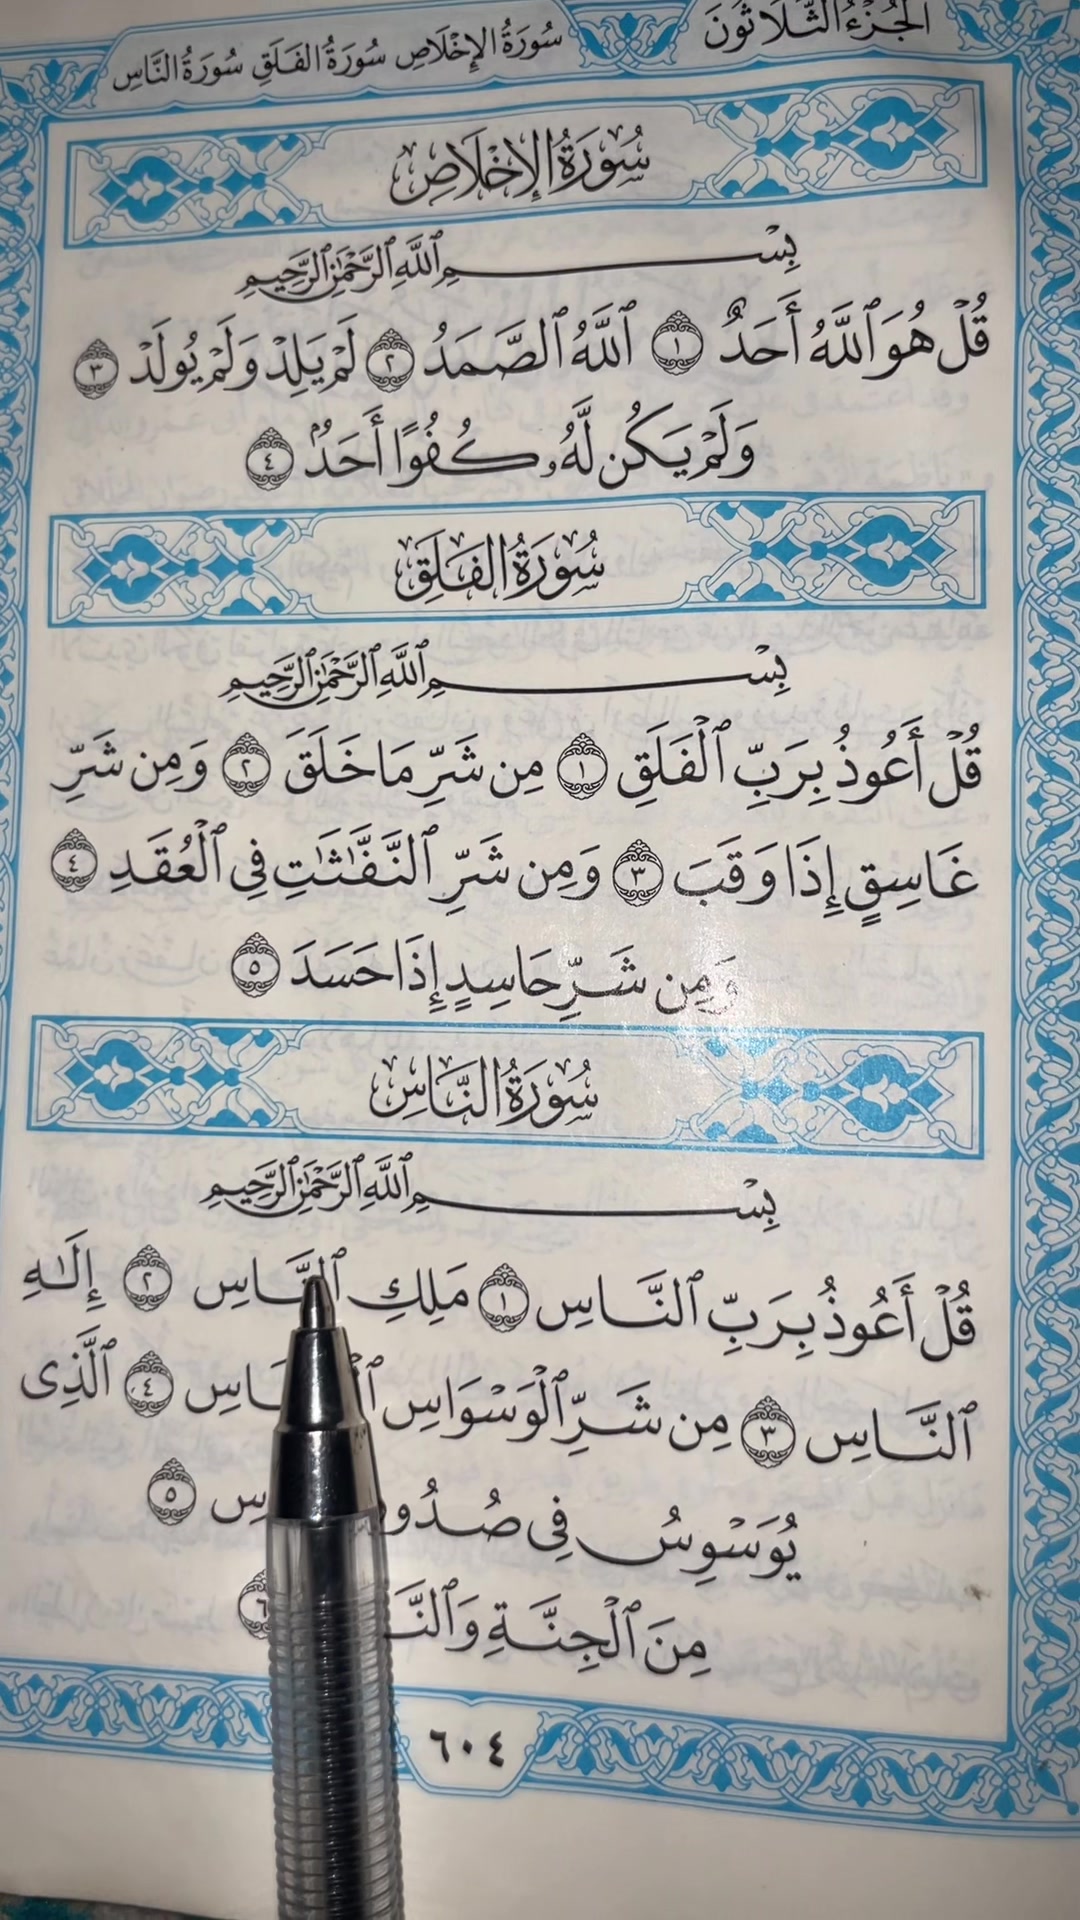 الجُزْءُ الثَّلَاثُونَ سُورَةُ الإِخْلَاصِ سُورَةُ الفَلَقِ سُورَةُ النَّاسِ
سُورَةُ الإِخْلَاصِ
بِسْمِ ٱللَّهِ ٱلرَّحْمَٰنِ ٱلرَّحِيمِ
قُلْ هُوَ ٱللَّهُ أَحَدٌ ١ ٱللَّهُ ٱلصَّمَدُ ٢ لَمْ يَلِدْ وَلَمْ يُولَدْ ٣
وَلَمْ يَكُن لَّهُۥ كُفُوًا أَحَدٌۢ ٤
سُورَةُ الفَلَقِ
بِسْمِ ٱللَّهِ ٱلرَّحْمَٰنِ ٱلرَّحِيمِ
قُلْ أَعُوذُ بِرَبِّ ٱلْفَلَقِ ١ مِن شَرِّ مَا خَلَقَ ٢ وَمِن شَرِّ
غَاسِقٍ إِذَا وَقَبَ ٣ وَمِن شَرِّ ٱلنَّفَّٰثَٰتِ فِى ٱلْعُقَدِ ٤
وَمِن شَرِّ حَاسِدٍ إِذَا حَسَدَ ٥
سُورَةُ النَّاسِ
بِسْمِ ٱللَّهِ ٱلرَّحْمَٰنِ ٱلرَّحِيمِ
قُلْ أَعُوذُ بِرَبِّ ٱلنَّاسِ ١ مَلِكِ ٱلنَّاسِ ٢ إِلَٰهِ
ٱلنَّاسِ ٣ مِن شَرِّ ٱلْوَسْوَاسِ ٤ ٱلَّذِى
يُوَسْوِسُ فِى ٥
مِنَ ٱلْجِنَّةِ ٦
٦٠٤